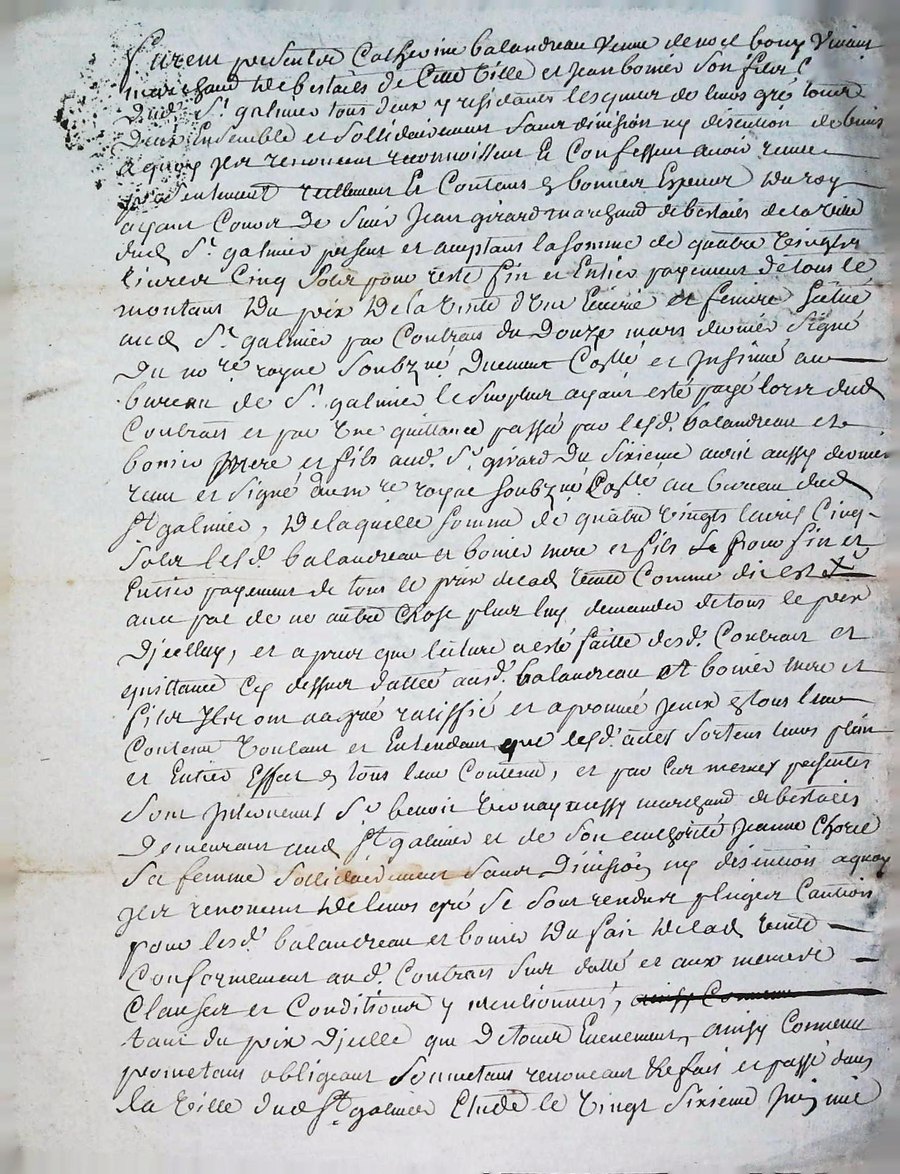 furent presentes Catherine balandreau veuve de noel bony vivant
marchand de bestaies de Cette ville et jean bonier son filz
dud. St. galmier tous deux y residants lesquels de leurs gré tous
deux Ensemble et sollidairement sans division ny discution de biens
a quoy ils renoncent reconnoissent et Confessent avoir receu
presentement reellement et Contens en bonnes Especes du roy
ayant Cours de sieur jean girard marchand de bestaies de la ville
dud. St. galmier present et aceptant la somme de quatre vingts
livres Cinq sols pour reste fin et Entier payement de tous le
montant du prix de la vente d'une Ecurie et feniere située
aud. St. galmier par Contrat du Douze mars dernier signé
du no.re royal soubzné Duement Collé et jnsinué au
bureau de St. galmier le surplus ayant esté payé lors dud.
Contrat et par une quittance passée par lesd. balandreau et
bonier mere et fils aud. Sr. girard du sixieme avril aussy dernier
receu et signé dum. re royal soubzné Collé au bureau dud.
St galmier, de laquelle somme de quatre vingts livres Cinq
sols lesd. balandreau et bonier mere et fils pour fin et
Entier payement de tous le prix de lad. vente Comme dit est
avec pac de ne autre chose plus luy demander de tous le prix
d'jcelluy, et aprés que lecture a esté faitte desd. Contrat et
quittance cy dessus dattée ausd. balandreau et bonier mere et
fils jls ont agréé ratiffié et aprouvé jceux en tous leur
Contenu voulant et Entendant que lesd. actes sortent leurs plein
et Entier Effet en tous leur Contenu, et par Ces memes presentes
sont jntervenus Sr. benoit aussy marchand de bestaies
demeurant aud. St galmier et de son authorité jeanne
sa femme sollidairement sans Division ny discution aquoy
jls renoncent de leurs gré se sont rendus pleiges Caution
pour lesd. balandreau et bonier du fait de lad. vente
Conformement aud. Contrat sus datté et aux memes
Clauses et Conditions y mentionnées,
tant du prix d'jcelle que de tous Evenement, ainsy Convenu
prometant obligeant soumetant renonceant &e fait et passé dans
la ville dud. St. galmier Etude le vingt sixieme juin mil